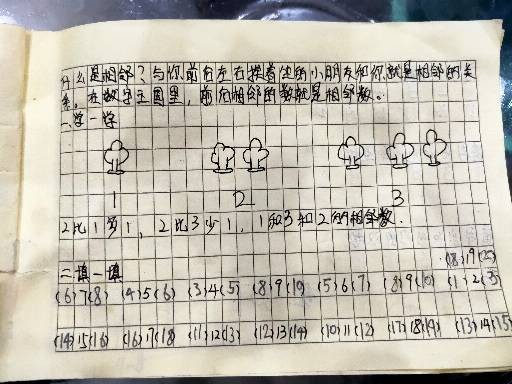 什么是相邻？与你前后左右挨着坐的小朋友和你就是相邻的关
系。在数字王国里，前后相邻的数就是相邻数。
一.学一学
1 2 3
2比1多1，2比3少1，1和3和2的相邻数.
(18)19(20)
二.填一填
(6)7(8) (4)5(6) (3)4(5) (8)9(10) (5)6(7) (8)9(10) (1)2(3)
(14)15(16) (16)17(18) (11)12(13) (12)13(14) (10)11(12) (17)18(19) (13)14(15)